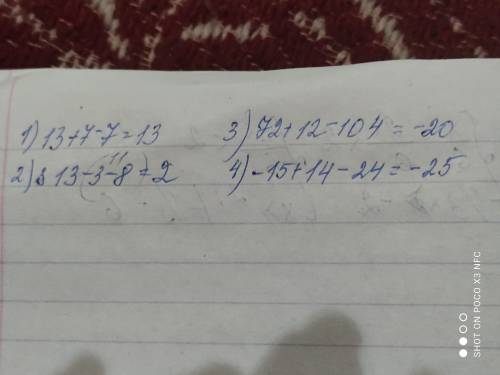 1) 13+7-7=13
2) 13-3-8=2
11
3) 72+12-104=-20
4) -15+14-24=-25
SHOT ON POCO X3 NFC